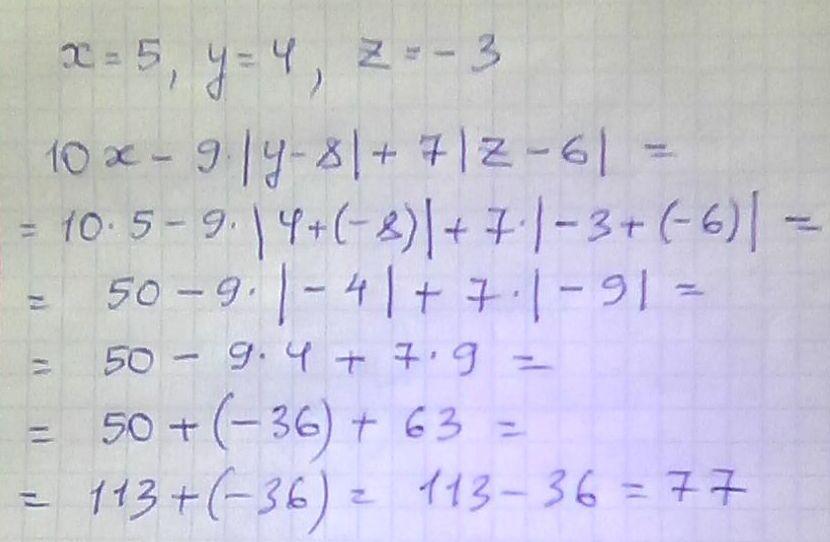 x = 5, y = 4, z = - 3
10 x - 9 · |y - 8| + 7 |z - 6| =
= 10 · 5 - 9 · |4 + (-8)| + 7 · |-3 + (-6)| =
= 50 - 9 · |-4| + 7 · |-9| =
= 50 - 9 · 4 + 7 · 9 =
= 50 + (-36) + 63 =
= 113 + (-36) = 113 - 36 = 77